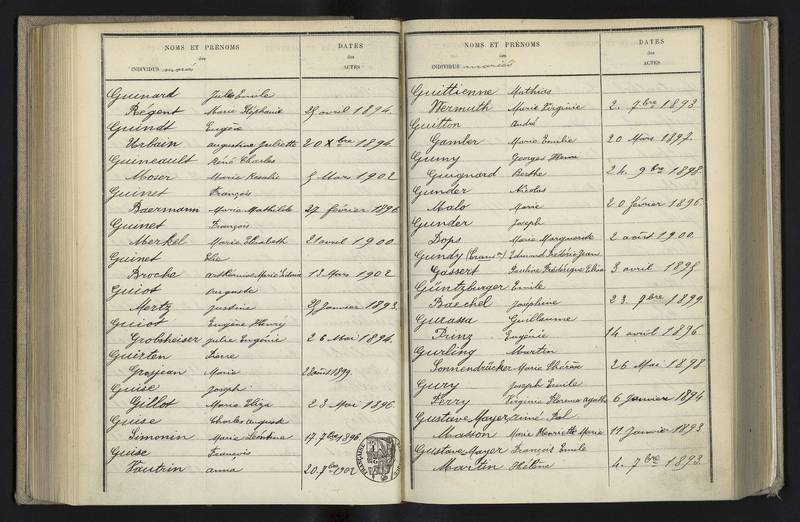 NOMS ET PRÉNOMS DATES
des des
INDIVIDUS mariés ACTES
Guinard Jules Emile
Régent Marie Stéphanie 25 avril 1894.
Guindt Eugène
Urbain Augustine Juliette 20 Xbre 1894
Guineault René Charles
Moser Marie Rosalie 5 Mars 1902
Guinet François
Baermann Marie Mathilde 27 février 1896
Guinet François
Merkel Marie Elisabeth 21 avril 1900.
Guinet Elie
Broche Marie 18 Mars 1902
Guiot Auguste
Mertz Justine 25 Janvier 1893.
Guiot Eugène Henry
Grolsheiser Julie Eugénie 26 Mai 1894.
Guirten Pierre
Grosjean Marie 1899.
Guise Joseph
Gillot Marie Eliza 23 Mai 1896.
Guise Charles Auguste
Simonin Marie Léontine 17 7bre 1896.
Guise François
Vautrin Anna 20. 7bre 1902
NOMS ET PRÉNOMS DATES
des des
INDIVIDUS mariés ACTES
Guittienne Mathias
Wermuth Marie Virginie 2. 7bre 1893.
Guitton André
Gamber Marie Emilie 20 Mars 1897.
Guiny Georges Henri
Guignard Berthe 24. 9bre 1898.
Gunder Nicolas
Malo Marie 20 février 1896.
Gunder Joseph
Dops Marie Marguerite 2 août 1900.
Gundy Edmond Frédéric Jean
Gassert Pauline Frédérique Elisa 3 avril 1895
Güntzburger Emile
Baechel Joséphine 23. 9bre 1899.
Gurassa Guillaume
Prinz Eugénie 14 avril 1896.
Gurling Martin
Sonnendrücker Marie Thérèse 26 Mai 1898
Gury Joseph Emile
Ferry Virginie Florence Agathe 6 Janvier 1894
Gustave Mayer Aimé Paul
Masson Marie Henriette Marie 11 Janvier 1893
Gustave Mayer François Emile
Martin Hélène 4. 7bre 1893.